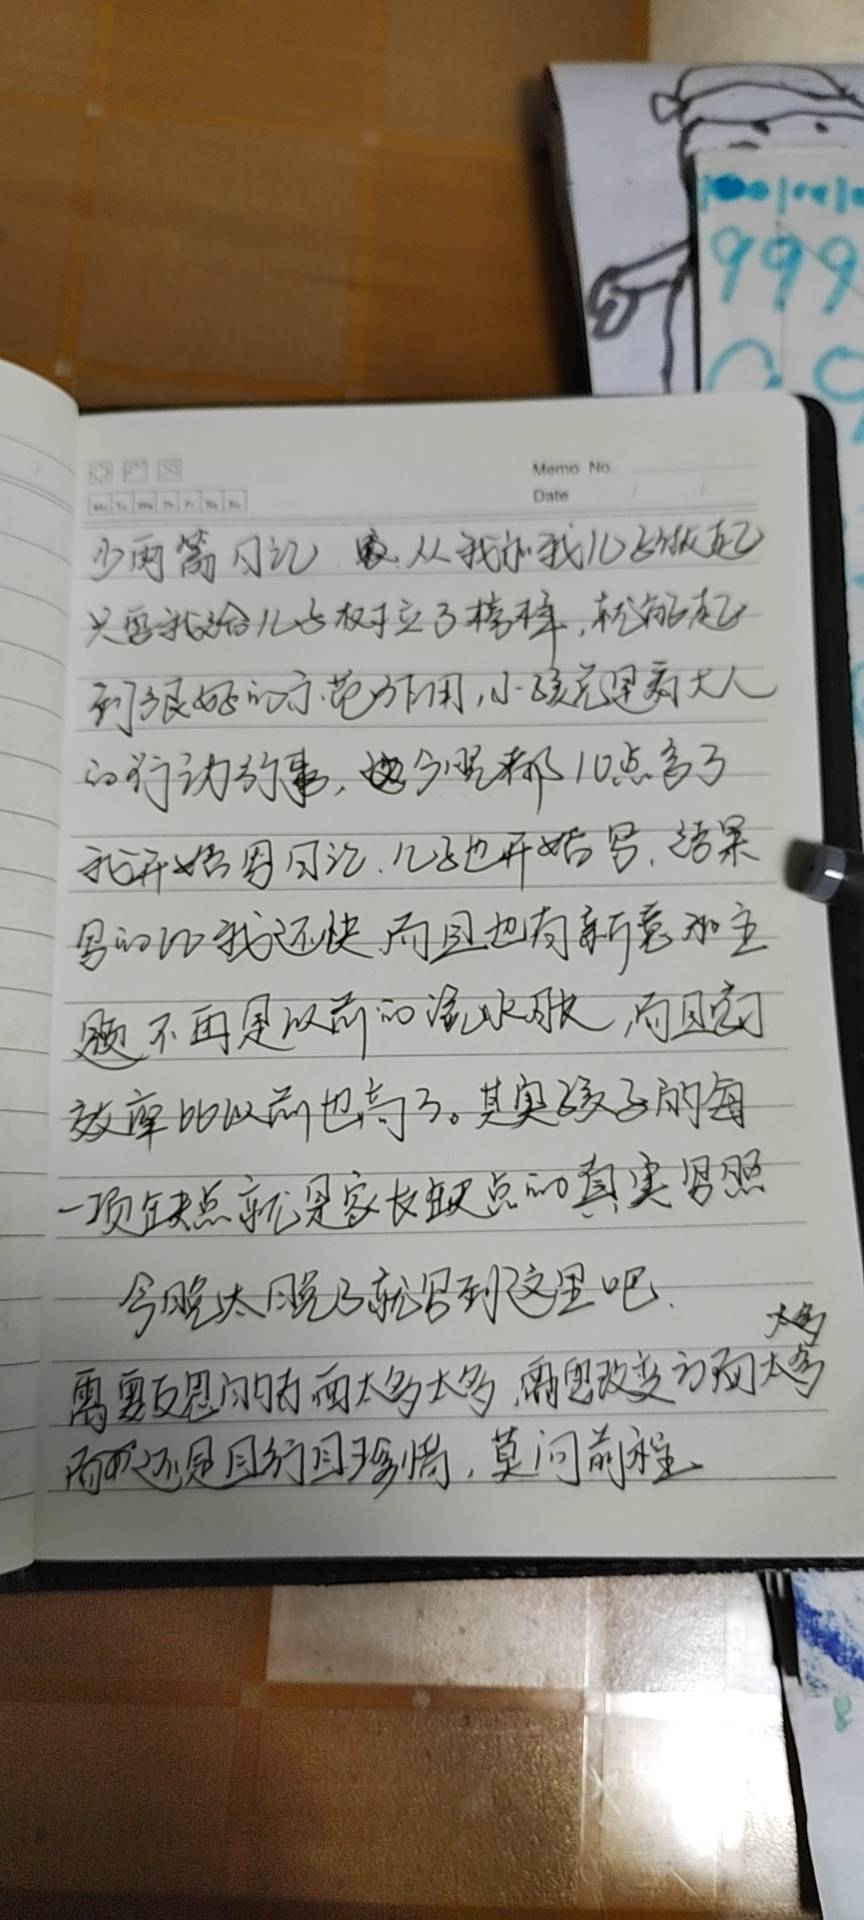 Memo No.
Date / /
Mo Tu We Th Fr Sa Su
少两篇日记 从我和我儿子做起
只要我给儿子树立了榜样，就能起
到很好的示范作用，小孩总是看大人
的行动行事，今晚都10点多了
我开始写日记，儿子也开始写，结果
写的比我还快，而且也有新意和主
题，不再是以前的流水账，而且
效率比以前也高了。其实孩子的每
一项缺点就是家长缺点的真实写照
今晚太晚了就写到这里吧.
太多
需要反思的方面太多太多，需要改变方面太多
而还是且行且珍惜，莫问前程
999
8